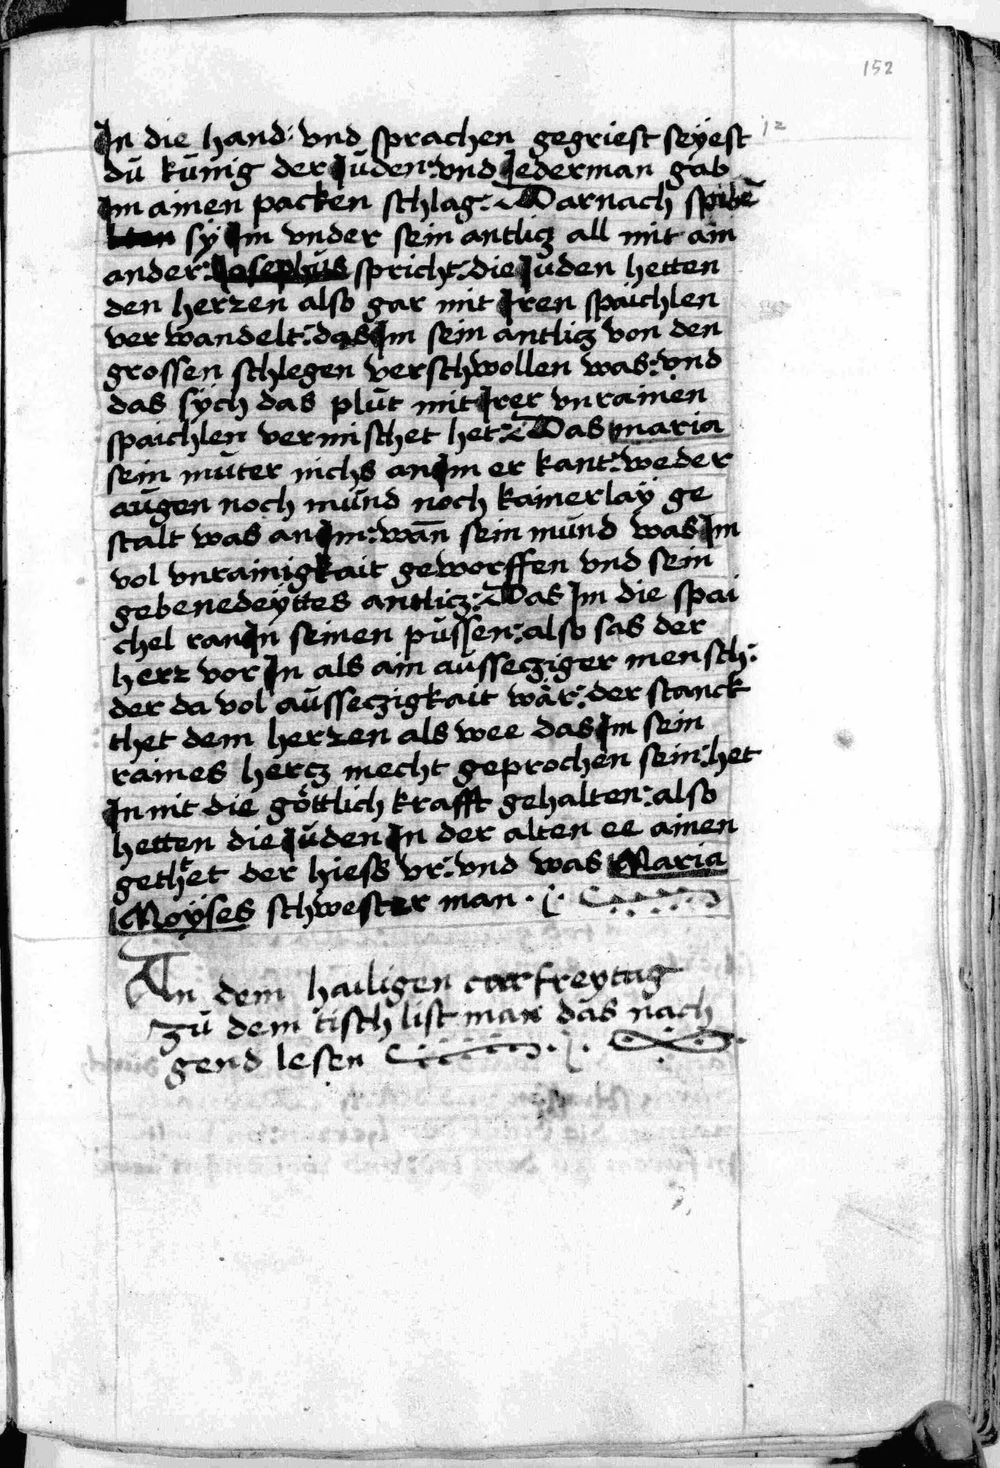 152
12
In die hand: vnd sprachen gegriest seÿest
dü künig der Jüden: vnd Jederman gab
Im ainen packen schlag: Darnach spibē
sÿ Im vnder sein antlicz all mit ain
ander: Josephüs spricht: die Jüden hetten
den herzen also gar mit Iren spaichlen
ver wandelt: das Im sein antlicz von den
grossen schlegen verschwollen was: vnd
das sÿch das plüt mit Irer vnrainen
spaichlen vermischet het: Das maria
sein müter nichs an Im er kant: weder
aügen noch münd noch kainerlaÿ ge
stalt was an Im: wan̄ sein münd was Im
vol vnrainigkait geworffen vnd sein
gebenedeÿttes antlicz: Das Im die spai
chel ran In seinen püssen: also sas der
herz vor In als ain aüsseczziger mensch:
der da vol aüsseczigkait wär: der stanck
thet dem herzen als wee das Im sein
raines hercz mecht geprochen sein: het
In nit die göttlich krafft gehalten: also
hetten die Jüden In der alten ee ainen
gethet der hiess vr: vnd was Maria
Moÿses schwester man
An dem hailigen carfreÿtag
zü dem tisch list man das nach
gend lesen